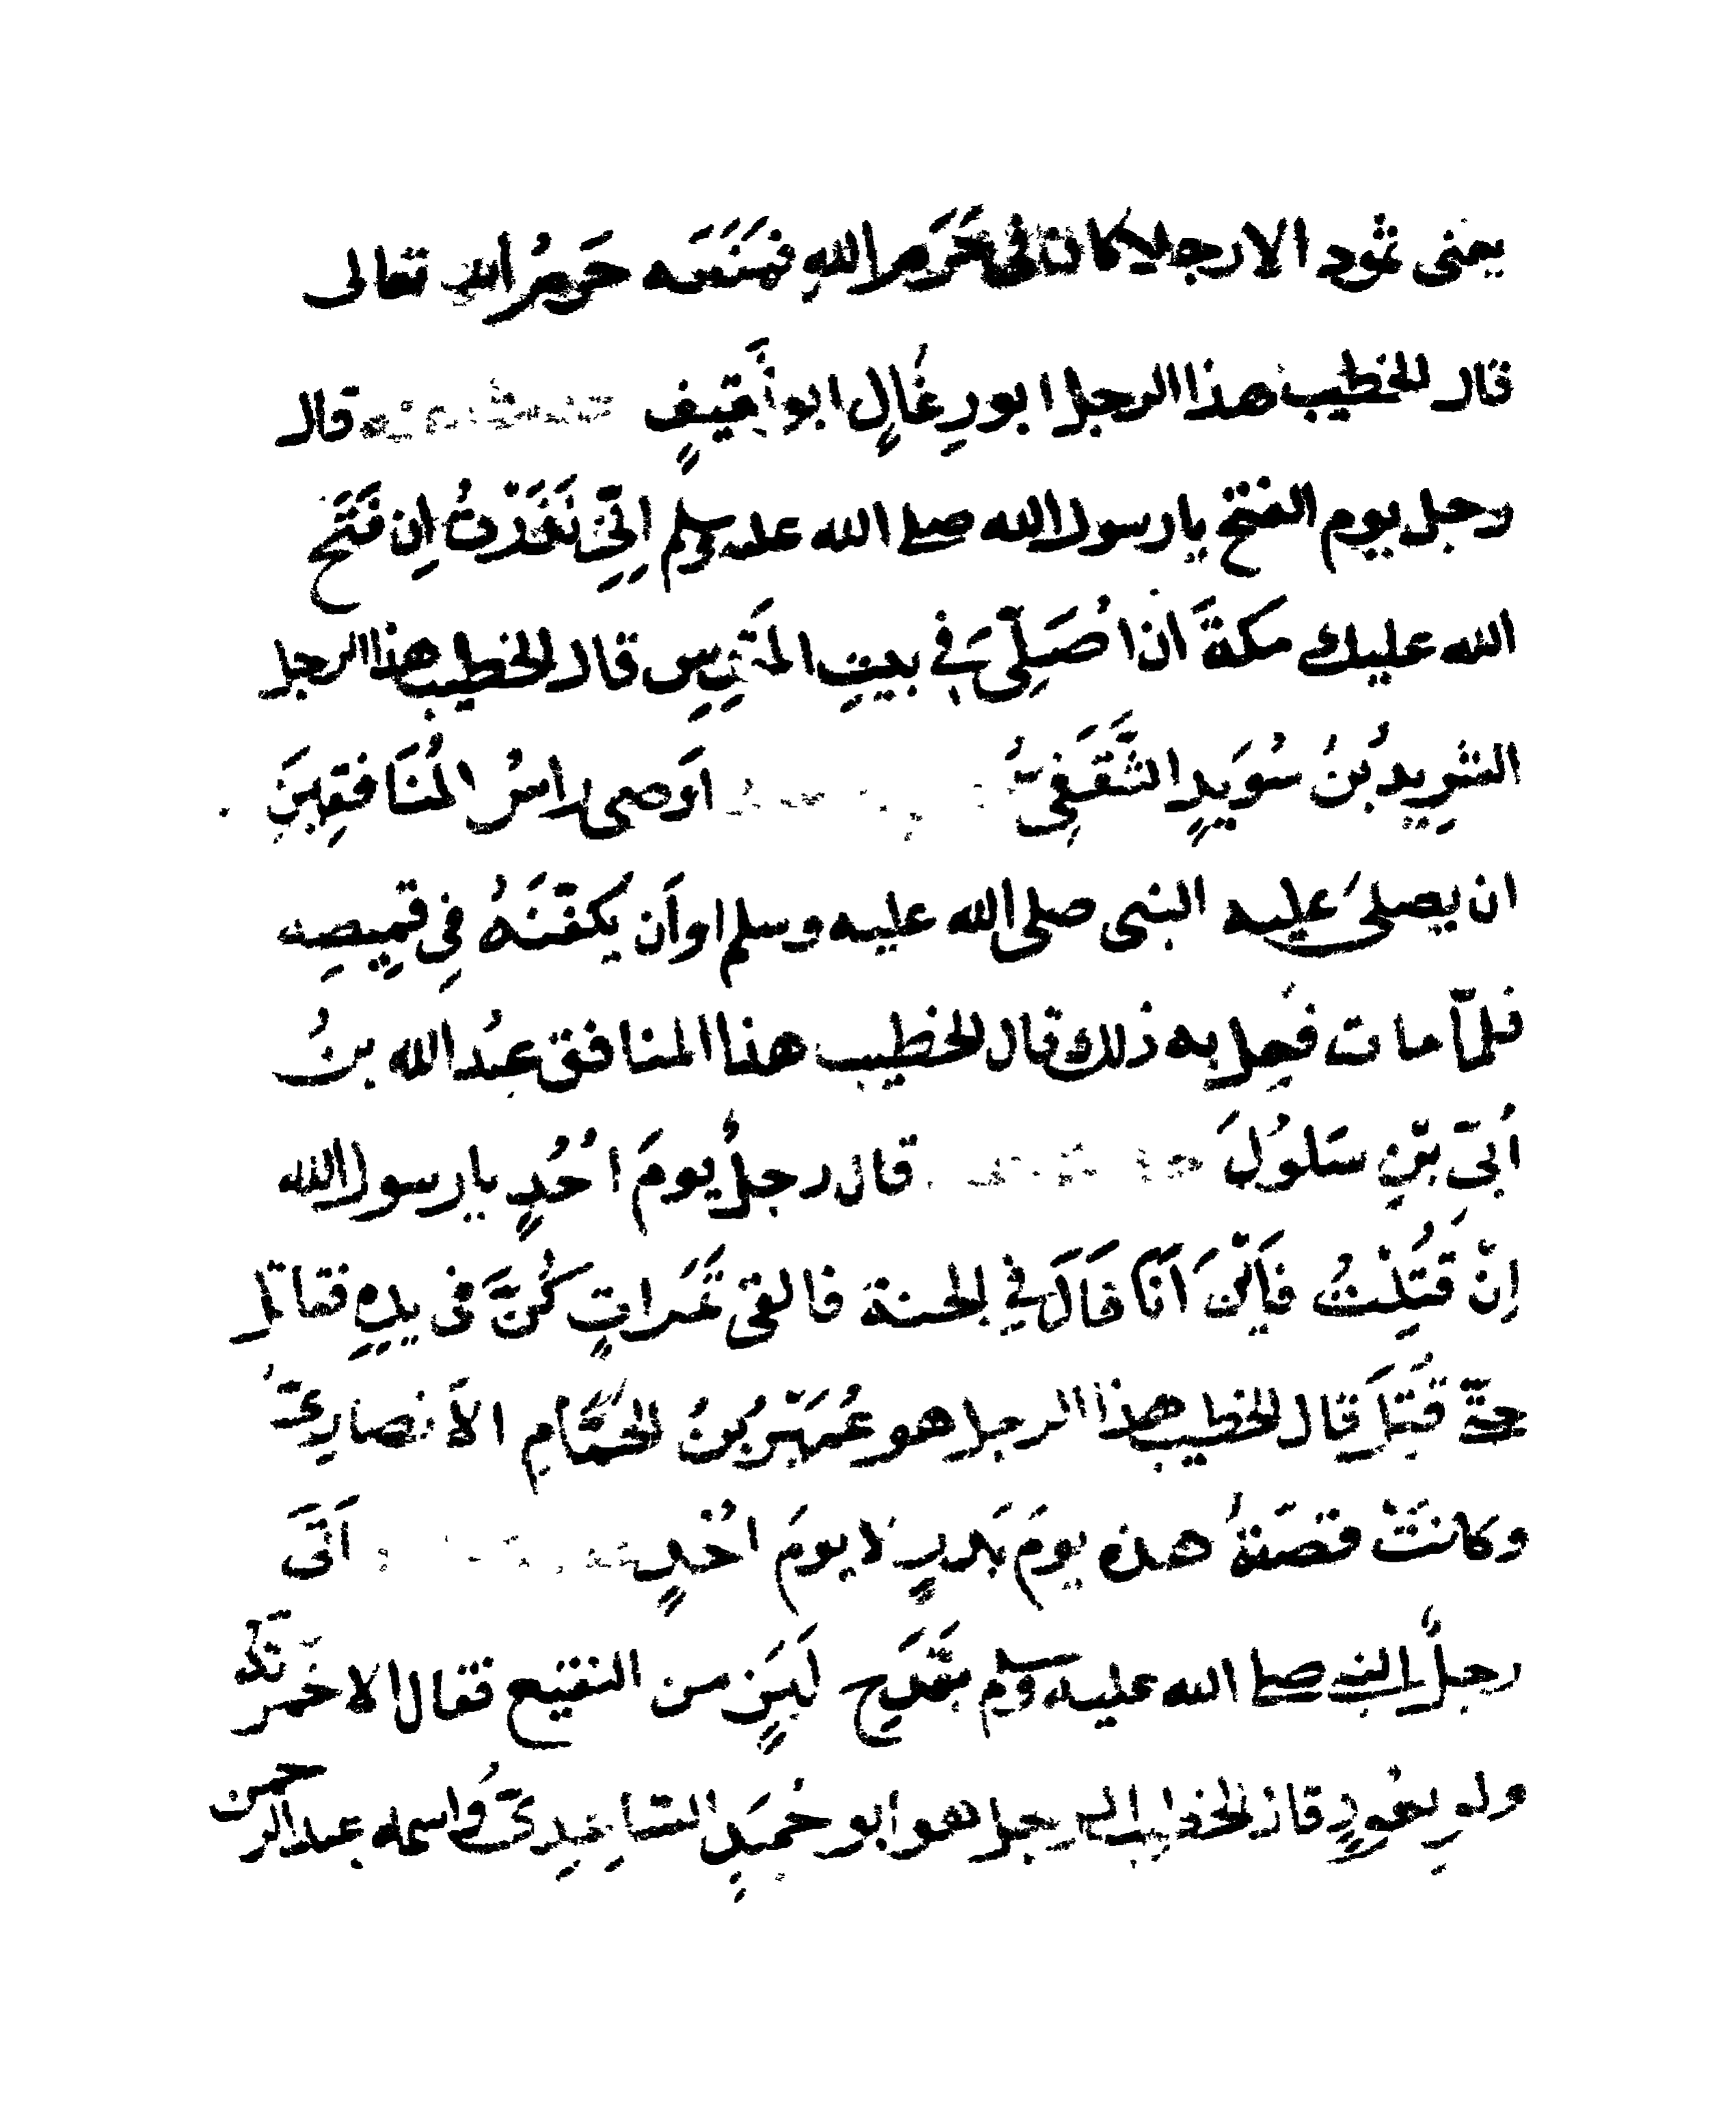 يعنى ثمود الا رجلا كان فى حَرَمِ اللهِ فمَنَعَه حَرَمُ اللهِ تعالى
قال الخطيب هذا الرجل ابو رِغَالٍ ابو ثَقِيفٍ قال
رجل يوم الفتح يا رسول الله صلى الله عليه وسلم اِنِّى نَذَرْتُ اِن فَتَحَ
الله عليك مكةَ اَن اُصَلِّىَ فى بيتِ المَقْدِسِ قال الخطيب هذا الرجل
الشَرِيدُ بنُ سُوَيدٍ الثَّقَفِىُّ اَوصى راسُ المُنَافقِينَ
ان يصلىَ عليه النبى صلى الله عليه وسلم اوأَن يكفّنَهُ فِى قمِيصِه
فلمّا مات فعِل به ذلك قال الخطيب هذا المنافق عبدُ الله بنُ
اُبَىّ بْنِ سَلولَ قال رجلٌ يومَ اُحُدٍ يا رسول الله
اِنْ قُتِلْتُ فاَيْنَ اَنَا قَالَ فِى الجنة فالقى تَمَراتٍ كُنَّ فى يدِهِ فقاتل
حتّى قُتِلَ قال الخطيب هذا الرجل هو عُمَيْر بْنُ الحُمَامِ الأنصارِىُّ
وكانتْ قصّةُ هذه يومَ بَدرٍ لا يومَ اُحُدٍ اَتَى
رجلٌ الى النبى صلى الله عليه وسلم بقَدَحِ لَبَنٍ من النقيع فقال الا خمّرتَه
ولو بعُودٍ قال الخطيب الرجل هو ابو حُمَيدٍ السّاعِدِىُّ واسمه عبد الرحمن